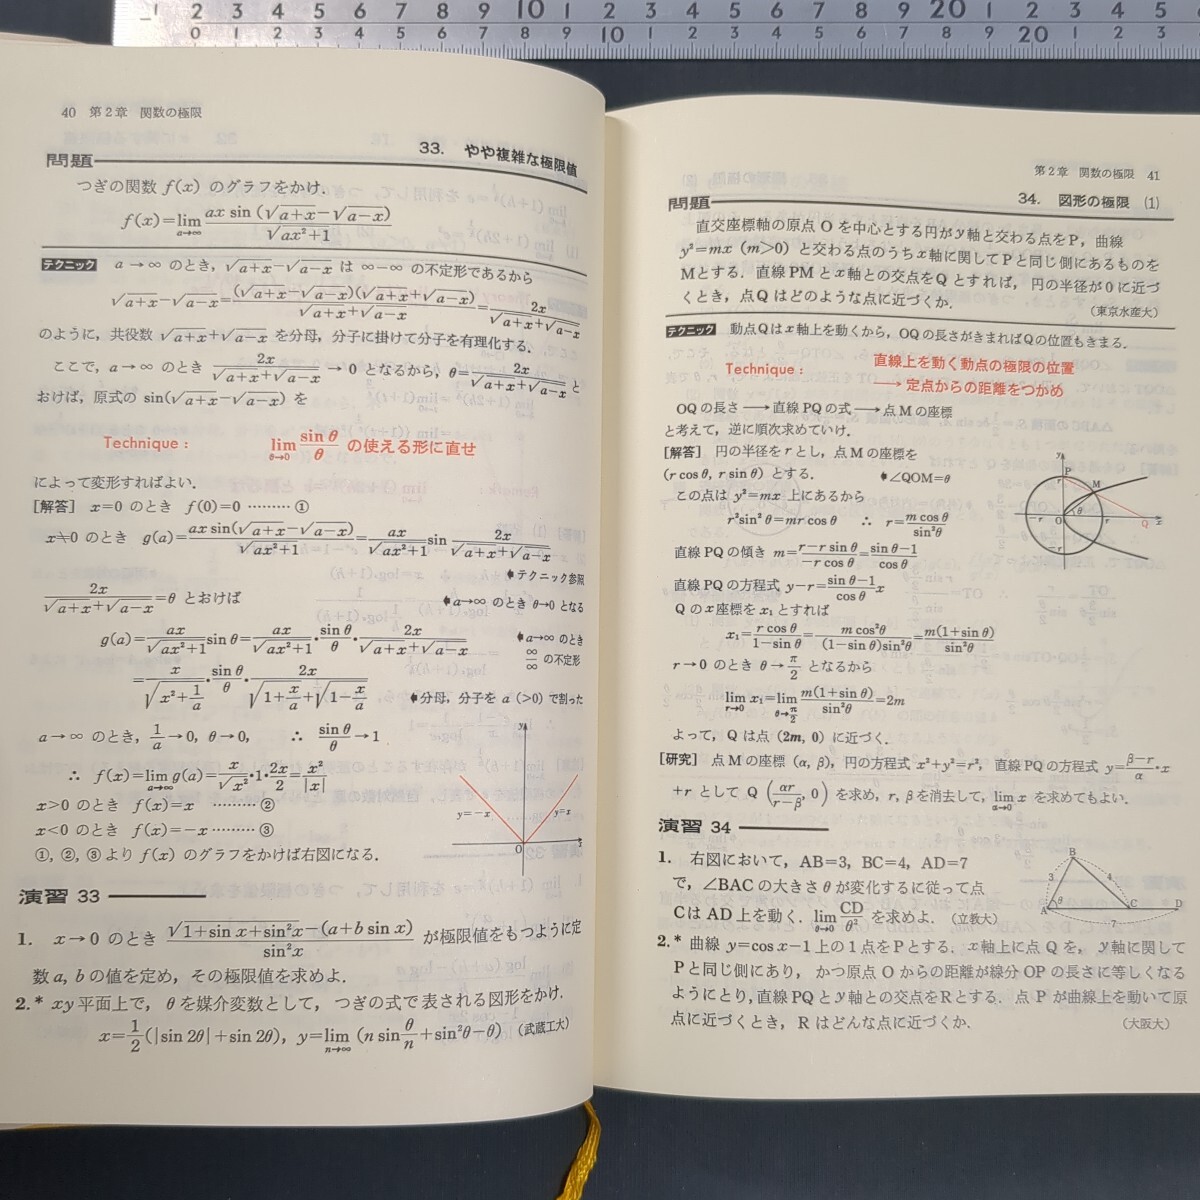 1 2 3 4 5 6 7 8 9 10 1 2 3 4 5 6 7 8 9 20 1 2 3 4 5
0 1 2 3 4 5 6 7 8 9 10 1 2 3 4 5 6 7 8 9 20 1 2 3
40 第2章 関数の極限
33. やや複雑な極限値
問題
つぎの関数 f(x) のグラフをかけ.
f(x)=lim_{a→∞} ax sin(√(a+x)−√(a−x))/√(ax²+1)
テクニック a→∞ のとき, √(a+x)−√(a−x) は ∞−∞ の不定形であるから
√(a+x)−√(a−x)=(√(a+x)−√(a−x))(√(a+x)+√(a−x))/(√(a+x)+√(a−x))=2x/(√(a+x)+√(a−x))
のように, 共役数 √(a+x)+√(a−x) を分母, 分子に掛けて分子を有理化する.
ここで, a→∞ のとき 2x/(√(a+x)+√(a−x)) → 0 となるから, θ=2x/(√(a+x)+√(a−x)) と
おけば, 原式の sin(√(a+x)−√(a−x)) を
Technique : lim_{θ→0} sin θ/θ の使える形に直せ
によって変形すればよい.
[解答] x=0 のとき f(0)=0 ……… ①
x≠0 のとき g(a)=ax sin(√(a+x)−√(a−x))/√(ax²+1)=ax/√(ax²+1) sin 2x/(√(a+x)+√(a−x))
テクニック参照
2x/(√(a+x)+√(a−x))=θ とおけば a→∞ のとき θ→0 となる
g(a)=ax/√(ax²+1) sin θ=ax/√(ax²+1)·sin θ/θ·2x/(√(a+x)+√(a−x)) a→∞ のとき ∞/∞ の不定形
=x/√(x²+1/a)·sin θ/θ·2x/(√(1+x/a)+√(1−x/a)) 分母, 分子を a (>0) で割った
a→∞ のとき, 1/a→0, θ→0, ∴ sin θ/θ→1
∴ f(x)=lim_{a→∞} g(a)=x/√x²·1·2x/2=x²/|x|
x>0 のとき f(x)=x ……… ②
x<0 のとき f(x)=−x ……… ③
①, ②, ③より f(x) のグラフをかけば右図になる.
y
y=−x
y=x
O
x
演習 33
1. x→0 のとき (√(1+sin x+sin²x)−(a+b sin x))/sin²x が極限値をもつように定
数 a, b の値を定め, その極限値を求めよ.
2.* xy 平面上で, θ を媒介変数として, つぎの式で表される図形をかけ.
x=1/2(|sin 2θ|+sin 2θ), y=lim_{n→∞} (n sin θ/n+sin²θ−θ) (武蔵工大)
第2章 関数の極限 41
34. 図形の極限 (1)
問題
直交座標軸の原点 O を中心とする円が y 軸と交わる点を P, 曲線
y²=mx (m>0) と交わる点のうち x 軸に関して P と同じ側にあるものを
M とする. 直線 PM と x 軸との交点を Q とすれば, 円の半径が 0 に近づ
くとき, 点 Q はどのような点に近づくか.
(東京水産大)
テクニック 動点 Q は x 軸上を動くから, OQ の長さがきまれば Q の位置もきまる.
Technique : 直線上を動く動点の極限の位置
→ 定点からの距離をつかめ
OQ の長さ → 直線 PQ の式 → 点 M の座標
と考えて, 逆に順次求めていけ.
[解答] 円の半径を r とし, 点 M の座標を
(r cos θ, r sin θ) とする. ∠QOM=θ
この点は y²=mx 上にあるから
r²sin²θ=mr cos θ ∴ r=m cos θ/sin²θ
直線 PQ の傾き m=(r−r sin θ)/(−r cos θ)=(sin θ−1)/cos θ
直線 PQ の方程式 y−r=(sin θ−1)/cos θ x
Q の x 座標を x₁ とすれば
x₁=r cos θ/(1−sin θ)=m cos²θ/((1−sin θ)sin²θ)=m(1+sin θ)/sin²θ
r→0 のとき θ→π/2 となるから
lim_{r→0} x₁=lim_{θ→π/2} m(1+sin θ)/sin²θ=2m
よって, Q は点 (2m, 0) に近づく.
y
P
r
M
θ
−r
O
r
Q
x
−r
[研究] 点 M の座標 (α, β), 円の方程式 x²+y²=r², 直線 PQ の方程式 y=(β−r)/α·x
+r として Q (αr/(r−β), 0) を求め, r, β を消去して, lim_{α→0} x を求めてもよい.
演習 34
1. 右図において, AB=3, BC=4, AD=7
で, ∠BAC の大きさ θ が変化するに従って点
C は AD 上を動く. lim_{θ→0} CD/θ² を求めよ. (立教大)
B
3
4
A
θ
C
D
7
2.* 曲線 y=cos x−1 上の 1 点を P とする. x 軸上に点 Q を, y 軸に関して
P と同じ側にあり, かつ原点 O からの距離が線分 OP の長さに等しくなる
ようにとり, 直線 PQ と y 軸との交点を R とする. 点 P が曲線上を動いて原
点に近づくとき, R はどんな点に近づくか.
(大阪大)